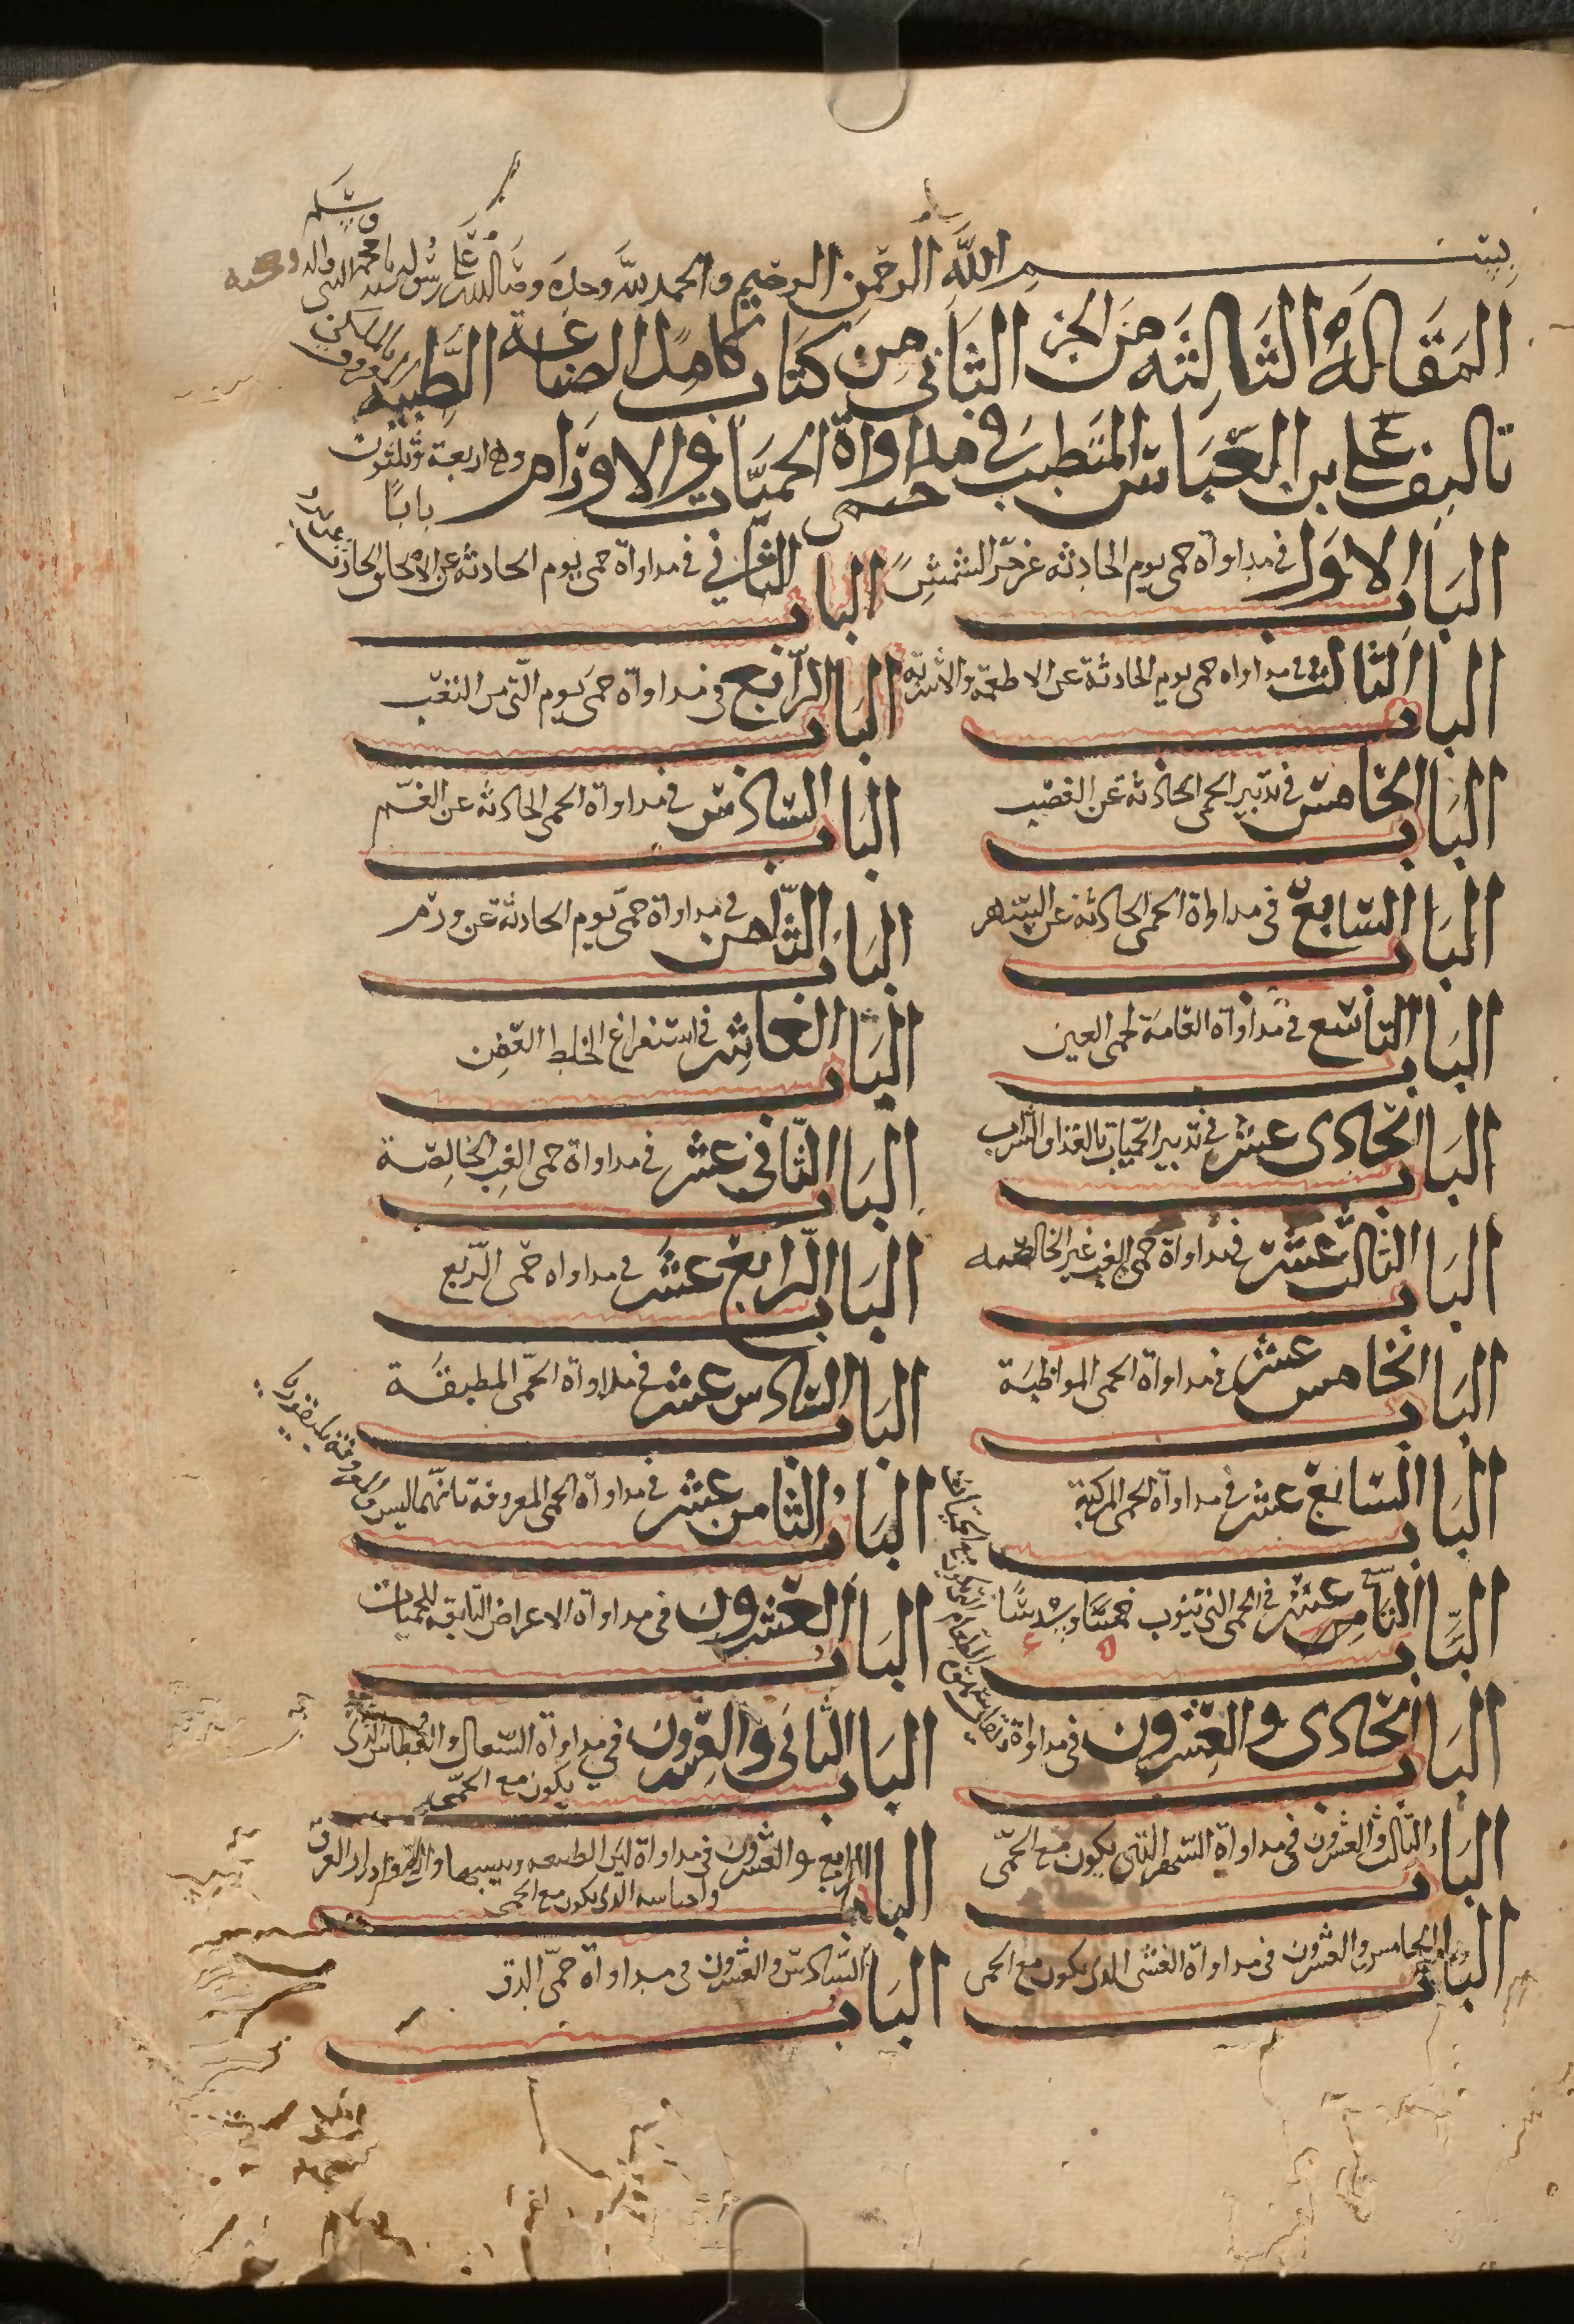 بسم الله الرحمن الرحيم والحمد لله وحده وصلى الله على رسوله سيدنا محمد النبي واله وصحبه وسلم
المقالة الثالثة من الجز الثاني من كتاب كامل الصناعة الطبية
المعروف بالملكي
تاليف علي بن العباس المتطبب في مداواة الحميات والاورام وهي اربعة وثلثون
بابًا
الباب الاول في مداواة حمى يوم الحادثه عن حر الشمس
الباب الثاني في مداواة حمى يوم الحادثه عن
الباب الثالث في مداواه حمى يوم الحادثة عن الاطعمة والاشربة
الباب الرابع في مداواة حمى يوم التي من التعب
الباب الخامس في تدبير الحمى الحادثة عن الغضب
الباب السادس في مداواة الحمى الحادثه عن الغم
الباب السابع في مداواة الحمى الحادثة عن السهر
الباب الثامن في مداواة حمى يوم الحادثة عن ورم
الباب التاسع في مداواة العامة لحمى العفن
الباب العاشر في استفراغ الخلط العفن
الباب الحادى عشر في تدبير الحميات بالغذا والشراب
الباب الثاني عشر في مداواة حمى الغب الخالصة
الباب الثالث عشر في مداواة حمى الغب غير الخالصه
الباب الرابع عشر في مداواه حمى الربع
الباب الخامس عشر في مداواة الحمى المواظبة
الباب السادس عشر في مداواة الحمى المطبقة
الباب السابع عشر في مداواة الحمى المركبة
الباب الثامن عشر في مداواة الحمى المعروفة بانفيالس
الباب التاسع عشر في الحمى التي تنوب خمسًا وسدسًا
الباب العشرون في مداواة الاعراض التابعة للحميات
الباب الحادى والعشرون في مداواة
الباب الثانى والعشرون في مداواة السعال والعطاس الذى
يكون مع الحمى
الباب الثالث والعشرون في مداواة السهر الذي يكون مع الحمى
الباب الرابع والعشرون في مداواة لين الطبيعه ويبسها والقي وادرار العرق
واحتباسه الذى يكون مع الحمى
الباب الخامس والعشرون في مداواة الغشى الذى يكون مع الحمى
الباب السادس والعشرون في مداواة حمى الدق